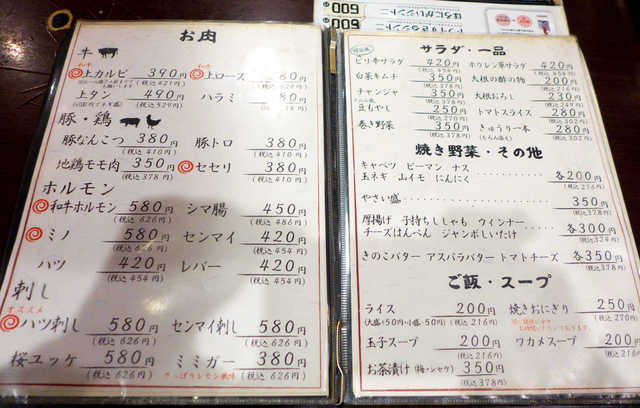 お肉
牛
上カルビ 390円 上ロース 60円
(税込421円)
上タン 490円 ハラミ 80円
(税込529円)
豚・鶏
豚なんこつ 380円 豚トロ 380円
(税込410円) (税込410円)
地鶏モモ肉 350円 セセリ 380円
(税込378円) (税込410円)
ホルモン
和牛ホルモン 580円 シマ腸 450円
(税込626円) (税込486円)
ミノ 580円 センマイ 420円
(税込626円) (税込454円)
ハツ 420円 レバー 420円
(税込454円) (税込454円)
刺し
オススメ
ハツ刺し 580円 センマイ刺し 580円
(税込626円) (税込626円)
桜ユッケ 580円 ミミガー 380円
(税込626円) さっぱりレモン風味 (税込410円)
600
600
サラダ・一品
ピリ辛サラダ 420円 ホウレン草サラダ 420円
(税込454円) (税込454円)
白菜キムチ 350円 大根の酢の物 200円
(税込378円) (税込216円)
チャンジャ 350円 大根おろし 230円
(税込378円) (税込249円)
豆もやし 250円 トマトスライス 280円
(税込270円) (税込302円)
巻き野菜 350円 きゅうり一本 280円
(税込378円) (税込302円)
焼き野菜・その他
キャベツ ピーマン ナス
玉ネギ 山イモ にんにく 各200円
(税込216円)
やさい盛 350円
(税込378円)
厚揚げ 子持ちししゃも ウインナー
チーズはんぺん ジャンボしいたけ 各300円
(税込324円)
きのこバター アスパラバター トマトチーズ 各350円
(税込378円)
ご飯・スープ
ライス 200円 焼きおにぎり 250円
(大盛+50円・小盛-50円) (税込216円) (税込270円)
玉子スープ 200円 ワカメスープ 200円
(税込216円) (税込216円)
お茶漬け(梅・シャケ) 350円
(税込378円)